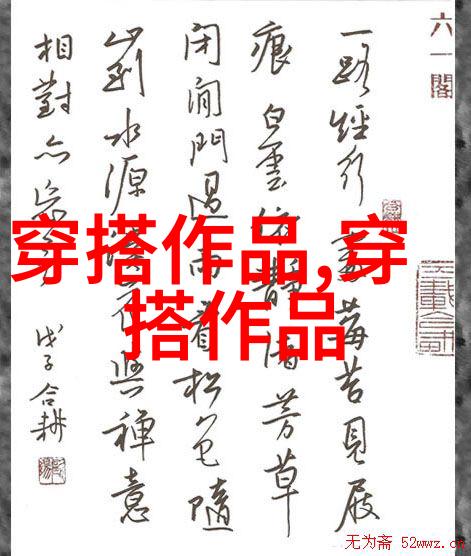 六一閣
一路經行莓苔見屐
痕白雲依靜渚芳草
闭閒門過雨看松色隨
山到水源與禅意
相對亦
戊子合耕
穿搭作品,穿
搭作品
无为斋 52wwz.c